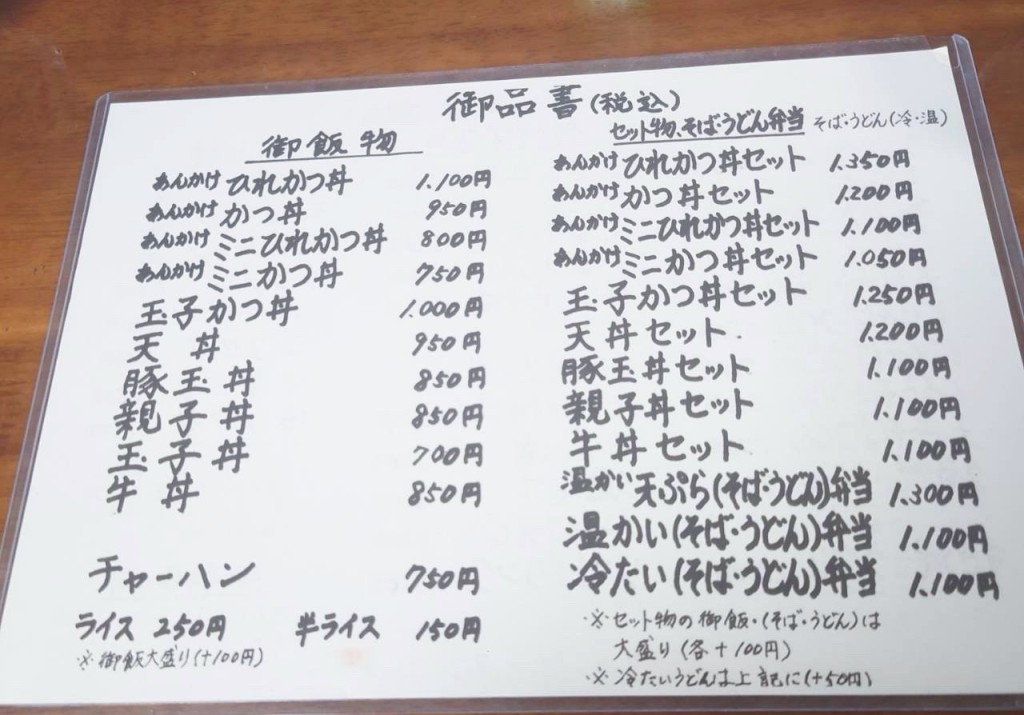 御品書(税込)
御飯物
あんかけひれかつ丼 1.100円
あんかけかつ丼 950円
あんかけミニひれかつ丼 800円
あんかけミニかつ丼 750円
玉子かつ丼 1.000円
天丼 950円
豚玉丼 850円
親子丼 850円
玉子丼 700円
牛丼 850円
チャーハン 750円
ライス 250円 半ライス 150円
※御飯大盛り(+100円)
セット物、そば・うどん弁当 そば・うどん(冷・温)
あんかけひれかつ丼セット 1.350円
あんかけかつ丼セット 1.200円
あんかけミニひれかつ丼セット 1.100円
あんかけミニかつ丼セット 1.050円
玉子かつ丼セット 1.250円
天丼セット 1.200円
豚玉丼セット 1.100円
親子丼セット 1.100円
牛丼セット 1.100円
温かい天ぷら(そば・うどん)弁当 1.300円
温かい(そば・うどん)弁当 1.100円
冷たい(そば・うどん)弁当 1.100円
※セット物の御飯・(そば・うどん)は
大盛り(各+100円)
※冷たいうどんは上記に(+50円)